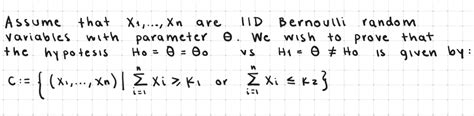 Assume that X₁,...,Xn are IID Bernoulli random
variables with parameter θ. We wish to prove that
the hypotesis H₀ = θ = θ₀ vs H₁ = θ ≠ H₀ is given by:
C := { (x₁,...,xn) | ∑ᵢ₌₁ⁿ Xi ≥ K₁ or ∑ᵢ₌₁ⁿ Xi ≤ K₂ }